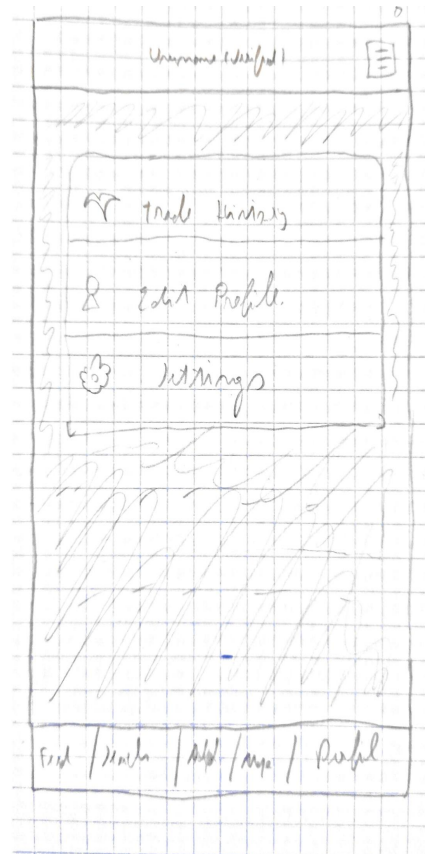 Username (Verified)
Trade History
Edit Profile
Settings
Feed / Search / Add / Map / Profil